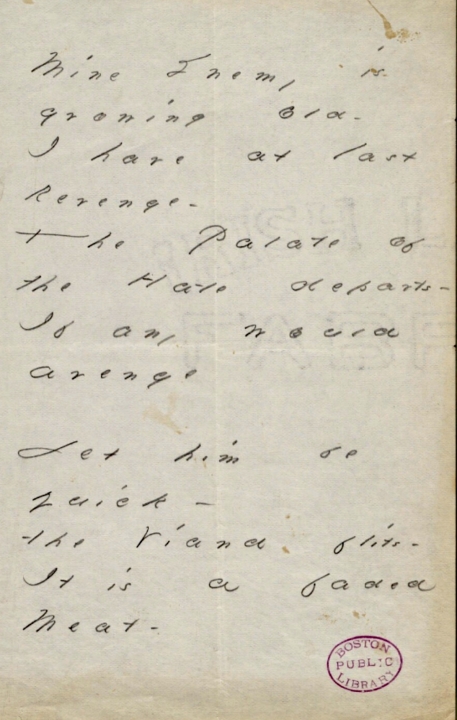 Mine Enemy is
growing old -
I have at last
Revenge -
The Palate of
the Hate departs -
If any would
avenge
Let him be
quick -
the Viand flits -
It is a faded
Meat -
BOSTON
PUBLIC
LIBRARY